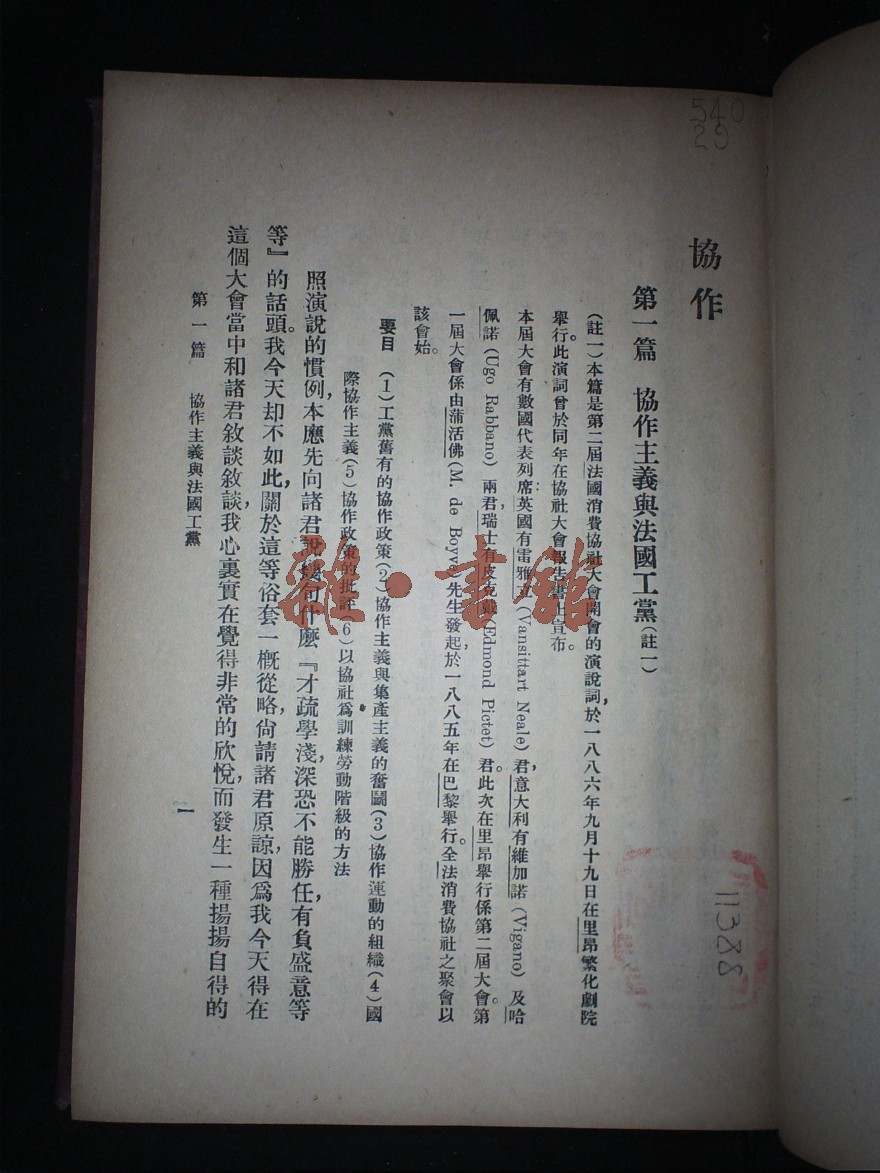 540
29
協作
第一篇　協作主義與法國工黨(註一)
(註一)本篇是第二屆法國消費協社大會開會的演說詞,於一八八六年九月十九日在里昂繁化劇院
舉行。此演詞曾於同年在協社大會報告書上宣布。
本屆大會有數國代表列席:英國有雷雅立(Vansittart Neale)君,意大利有維加諾(Vigano)及哈
佩諾(Ugo Rabbano)兩君,瑞士有皮克(Edmond Pictet)君。此次在里昂舉行係第二屆大會。第
一屆大會係由蒲活佛(M. de Boyve)先生發起,於一八八五年在巴黎舉行。全法消費協社之聚會以
該會始。
要目　(1)工黨舊有的協作政策(2)協作主義與集產主義的奮鬭(3)協作運動的組織(4)國
際協作主義(5)協作政策的批評(6)以協社爲訓練勞動階級的方法
照演說的慣例,本應先向諸君說幾句什麽『才疏學淺,深恐不能勝任,有負盛意等
等』的話頭。我今天却不如此,關於這等俗套一槪從略,尙請諸君原諒,因爲我今天得在
這個大會當中和諸君敘談敘談,我心裏實在覺得非常的欣悅,而發生一種揚揚自得的
第一篇　協作主義與法國工黨
一
11388
雜·書館